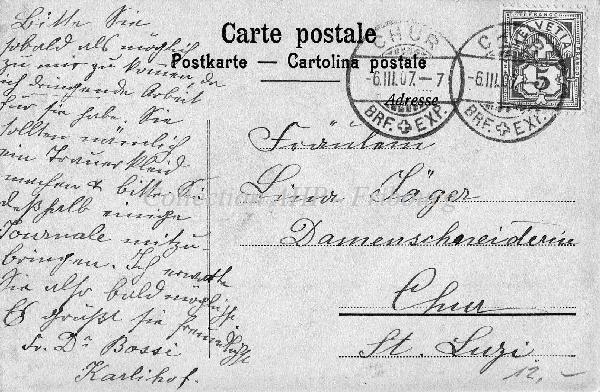 Carte postale
Postkarte — Cartolina postale
Adresse
HELVETIA
5
CHUR
-6.III.07.-7
BRF. EXP.
CHUR
-6.III.07
BRF. EXP.
Bitte Sie
sobald als möglich
zu mir zu kommen, da
ich dringende Arbeit
für sie habe. Sie
sollten nämlich
ein Trauerkleid
machen & bitte Sie
deßhalb einige
Journale mitzu-
bringen. Ich erwarte
Sie also bald möglichst
Es grüßt sie freundlichst
Fr. Dr. Bossi
Karlihof.
Fräulein
Jäger
Damenschneiderin
Chur
St. Luzi
12.-
Collection AHP - Fribourg